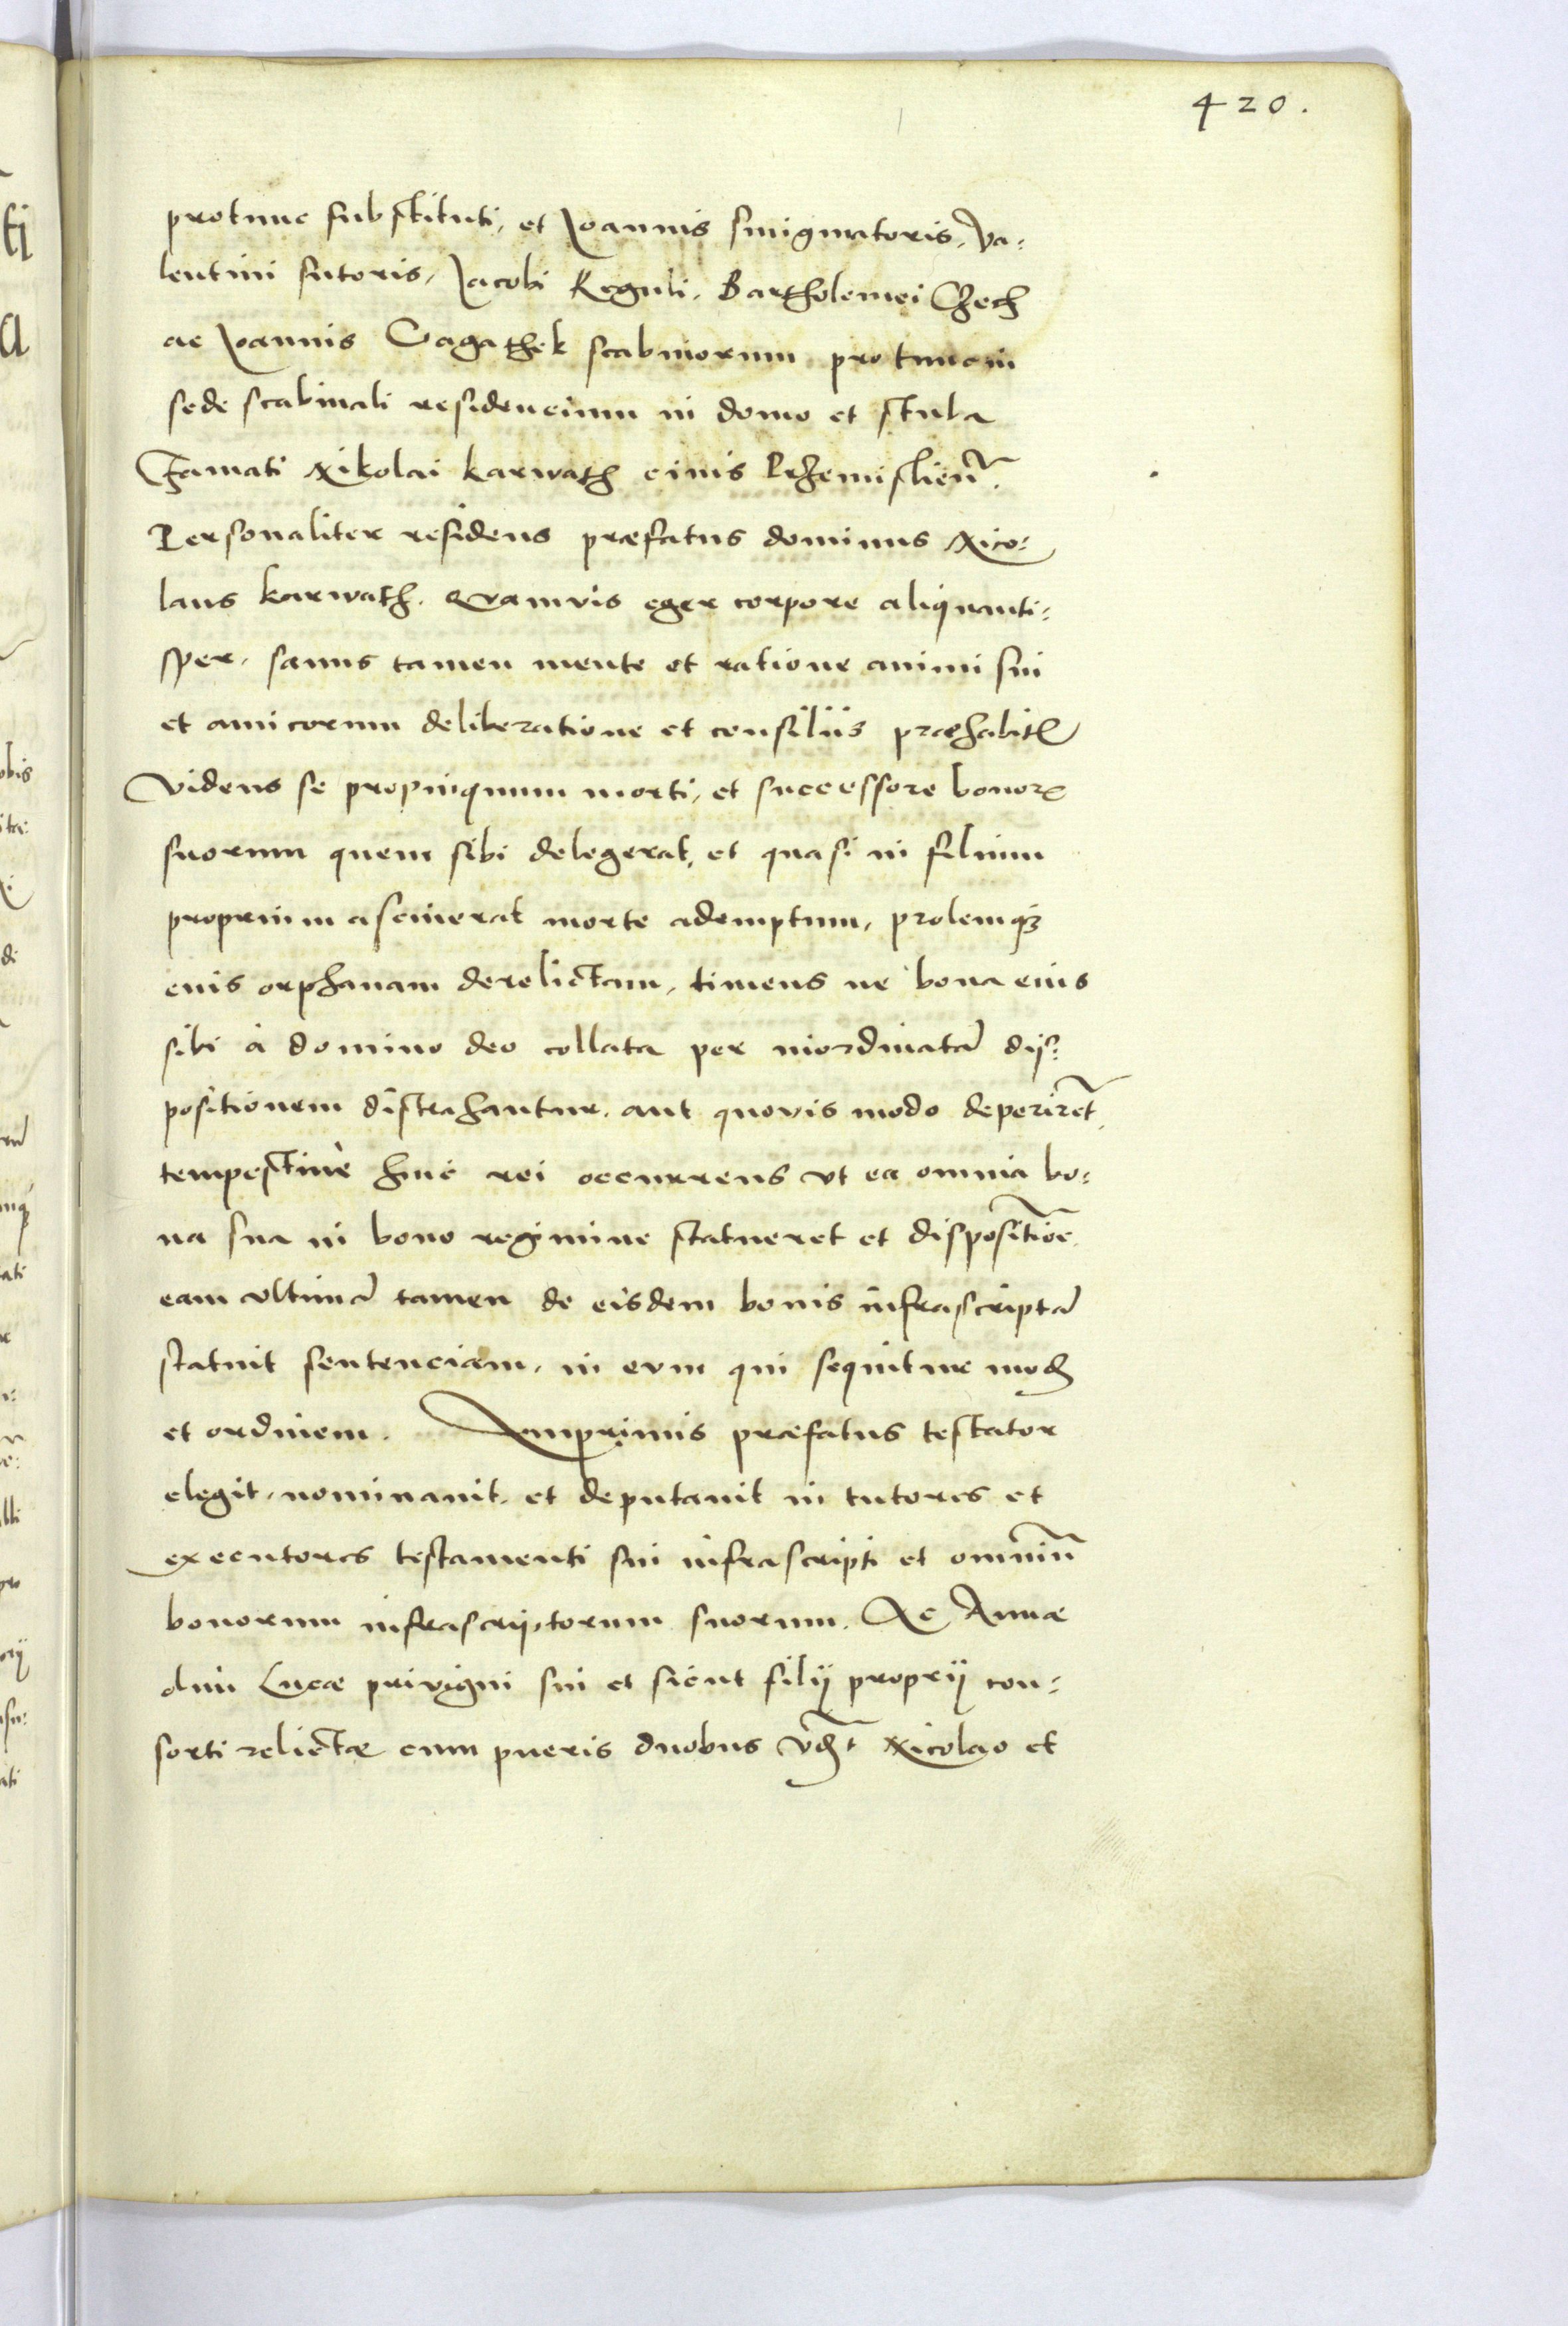 420.
protunc substituti, et Ioannis smigmatoris, Va⸗
lentini sutoris, Iacobi Reguli, Bartholemei Czech
ac Ioannis Gagathek scabinorum protunc in
sede scabinali residencium in domo et stuba
famati Nikolai Karwath civis Przemislien̄.
Personaliter residens præfatus dominus Nico⸗
laus Karwath. Qvamvis eger corpore aliquanti⸗
sper, sanus tamen mente et ratione animi sui
et amicorum deliberatione et consiliis præhabitꝭ
Videns se propinquum morti, et successore bonoꝝ
suorum quem sibi delegerat, et quasi in filium
proprium asciverat morte ademptum, prolemqꝫ
euis orphanam derelictam, timens ne bona eius
sibi à domino deo collata per inordinatā dis⸗
positionem distrahantur, aut quovis modo deperirēt,
tempestiuè huic rei occurrens vt ea omnia bo⸗
na sua in bono regimine statueret et dispositiōe
eam vltimā tamen de eisdem bonis infrascriptā
statuit sentenciam, in evm qui sequitur mod
et ordinem. Imprimis præfatus testator
elegit, nominauit, et deputauit in tutores et
executores testamenti sui infrascripti et omniū
bonorum infrascriptorum suorum. Ac Annæ
olim Lucæ privigni sui et sicut filij proprij con⸗
sorti relictæ cum pueris duobus vꝫ Nicolao et